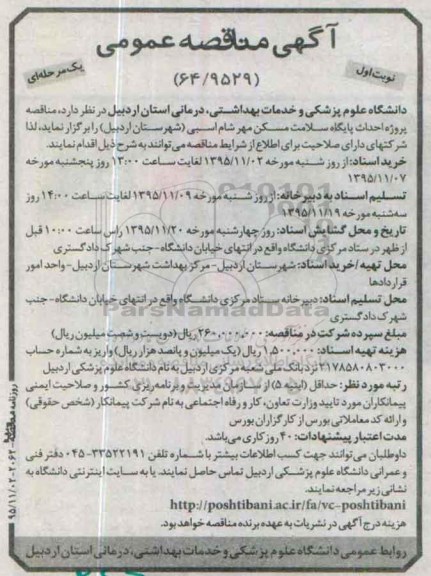 آگهی مناقصه عمومی
نوبت اول
(۶۴/۹۵۲۹)
یک مرحله‌ای
دانشگاه علوم پزشکی و خدمات بهداشتی، درمانی استان اردبیل در نظر دارد، مناقصه
پروژه احداث پایگاه سلامت مسکن مهر شام اسبی (شهرستان اردبیل) را برگزار نماید، لذا
شرکتهای دارای صلاحیت برای اطلاع از شرایط مناقصه می‌توانند به شرح ذیل اقدام نمایند.
خرید اسناد: از روز شنبه مورخه ۱۳۹۵/۱۱/۰۲ لغایت ساعت ۱۳:۰۰ روز پنجشنبه مورخه
۱۳۹۵/۱۱/۰۷
تسلیم اسناد به دبیرخانه: از روز شنبه مورخه ۱۳۹۵/۱۱/۰۹ لغایت ساعت ۱۴:۰۰ روز
سه‌شنبه مورخه ۱۳۹۵/۱۱/۱۹
تاریخ و محل گشایش اسناد: روز چهارشنبه مورخه ۱۳۹۵/۱۱/۲۰ راس ساعت ۱۰:۰۰ قبل
از ظهر در ستاد مرکزی دانشگاه واقع در انتهای خیابان دانشگاه - جنب شهرک دادگستری
محل تهیه/خرید اسناد: شهرستان اردبیل- مرکز بهداشت شهرستان اردبیل- واحد امور
قراردادها
محل تسلیم اسناد: دبیرخانه ستاد مرکزی دانشگاه واقع در انتهای خیابان دانشگاه- جنب
شهرک دادگستری
مبلغ سپرده شرکت در مناقصه: ۲۶۰,۰۰۰,۰۰۰ ریال (دویست و شصت میلیون ریال)
هزینه تهیه اسناد: ۱,۵۰۰,۰۰۰ ریال (یک میلیون و پانصد هزار ریال) واریز به شماره حساب
۲۱۷۸۵۸۰۸۰۳۰۰۰ نزد بانک ملی شعبه مرکزی اردبیل به نام دانشگاه علوم پزشکی اردبیل
رتبه مورد نظر: حداقل (ابنیه ۵) از سازمان مدیریت و برنامه ریزی کشور و صلاحیت ایمنی
پیمانکاران مورد تایید وزارت تعاون، کار و رفاه اجتماعی به نام شرکت پیمانکار (شخص حقوقی)
و ارائه کد معاملاتی بورس از کارگزاران بورس
مدت اعتبار پیشنهادات: ۴۰ روز کاری می‌باشد.
داوطلبان می‌توانند جهت کسب اطلاعات بیشتر با شماره تلفن ۳۳۵۲۲۱۹۱-۰۴۵ دفتر فنی
و عمرانی دانشگاه علوم پزشکی اردبیل تماس حاصل نمایند. یا به سایت اینترنتی دانشگاه به
نشانی زیر مراجعه نمایند.
http://poshtibani.ac.ir/fa/vc-poshtibani
هزینه درج آگهی در نشریات به عهده برنده مناقصه خواهد بود.
روابط عمومی دانشگاه علوم پزشکی و خدمات بهداشتی، درمانی استان اردبیل
روزنامه مناقصه ۲۰۶۲-۹۵/۱۱/۰۲
ParsNamadData